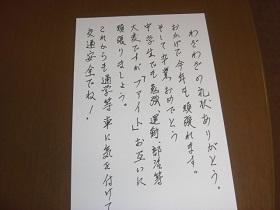 わざわざの礼状ありがとう。
おかげで今年も頑張れます。
そして卒業おめでとう
中学生でも勉強、運動、部活等
大変ですが「ファイト」お互いに
頑張りましょう。
これからも通学等車に気を付けて
交通安全でね!